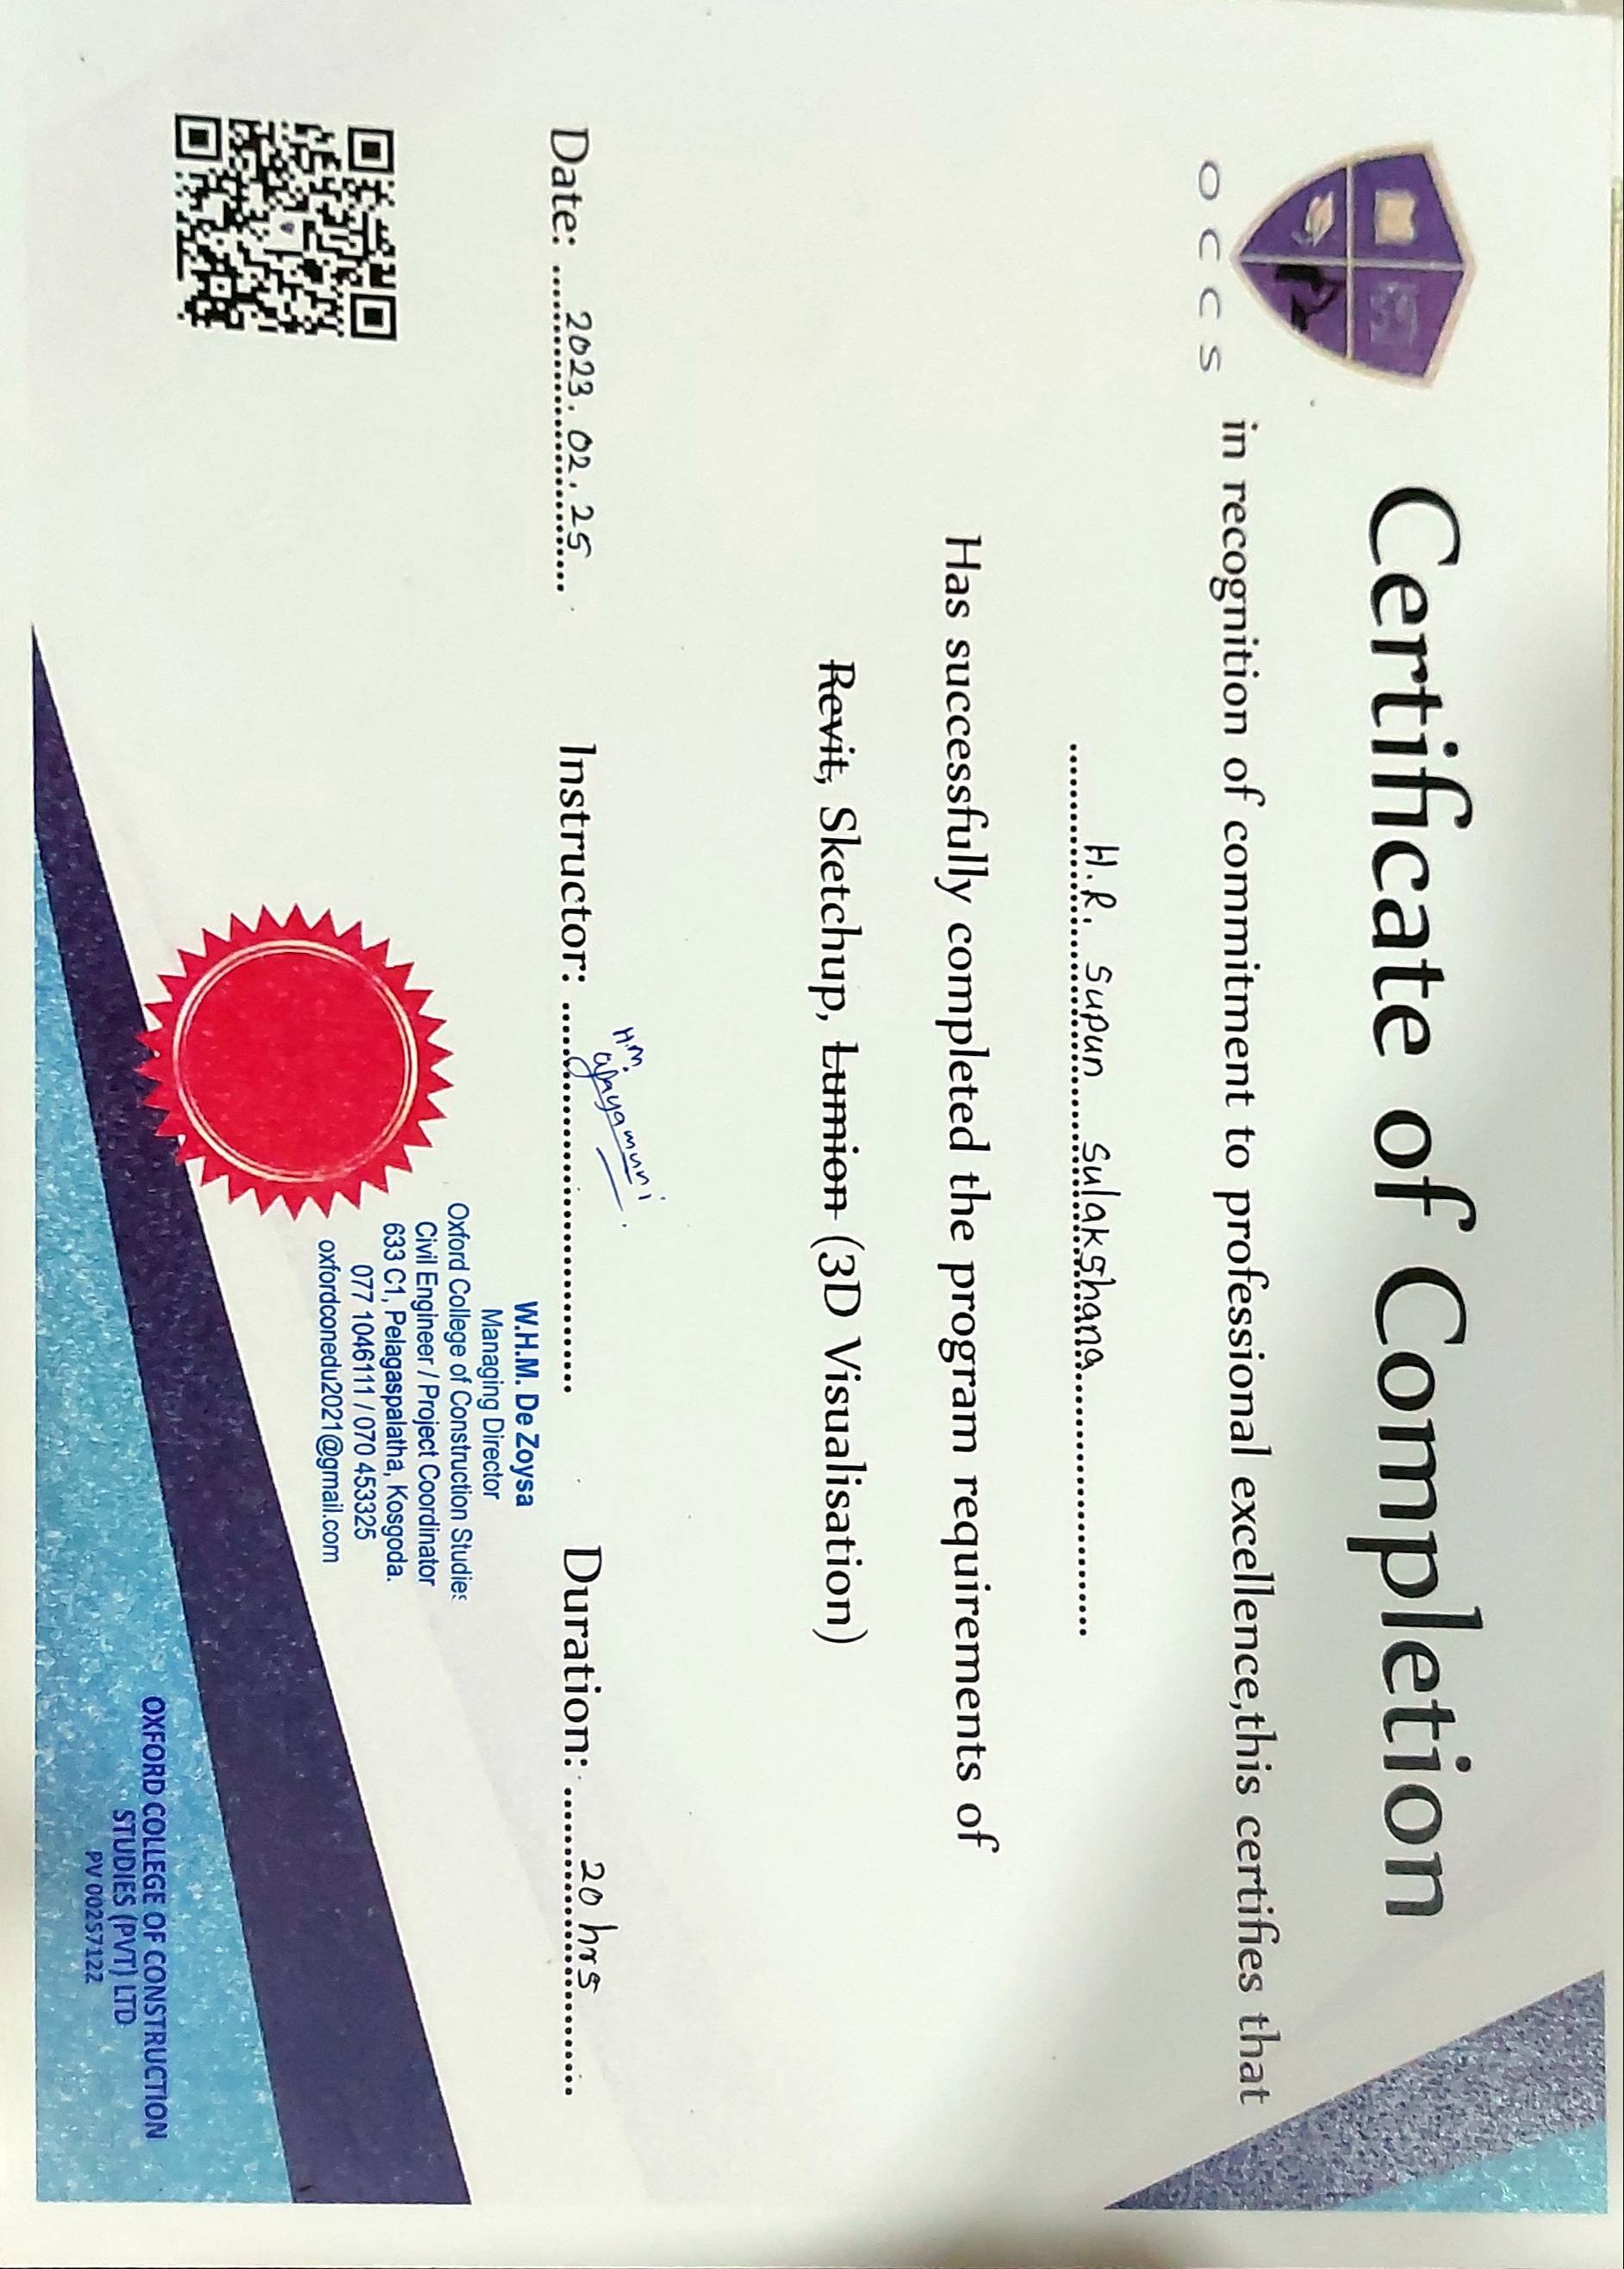 Certificate of Completion
O C C S
in recognition of commitment to professional excellence,this certifies that
H.R. Supun Sulakshana
Has successfully completed the program requirements of
Revit, Sketchup, Lumion (3D Visualisation)
Date: 2023.02.25
Instructor: H.M.
Duration: 20 hrs
W.H.M. De Zoysa
Managing Director
Oxford College of Construction Studies
Civil Engineer / Project Coordinator
633 C1, Pelagaspalatha, Kosgoda.
077 1046111 / 070 453325
oxfordconedu2021@gmail.com
OXFORD COLLEGE OF CONSTRUCTION
STUDIES (PVT) LTD
PV 00257122